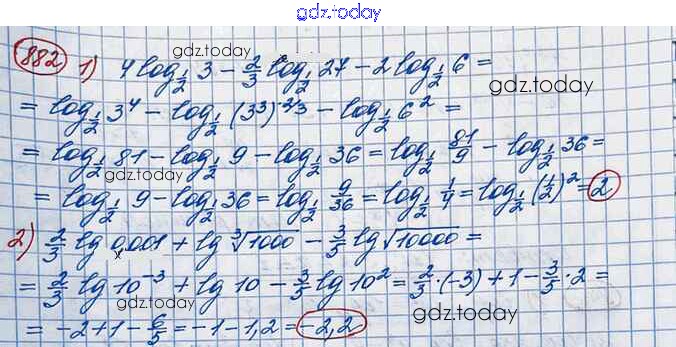 gdz.today
882 1) 4 log_{1/2} 3 - 2/3 log_{1/2} 27 - 2 log_{1/2} 6 =
gdz.today
gdz.today
= log_{1/2} 3^4 - log_{1/2} (3^3)^{2/3} - log_{1/2} 6^2 =
= log_{1/2} 81 - log_{1/2} 9 - log_{1/2} 36 = log_{1/2} 81/9 - log_{1/2} 36 =
gdz.today
= log_{1/2} 9 - log_{1/2} 36 = log_{1/2} 9/36 = log_{1/2} 1/4 = log_{1/2} (1/2)^2 = 2
2) 2/3 lg 0,001 + lg ∛1000 - 3/5 lg √10000 =
= 2/3 lg 10^{-3} + lg 10 - 3/5 lg 10^2 = 2/3 · (-3) + 1 - 3/5 · 2 =
gdz.today
gdz.today
= -2 + 1 - 6/5 = -1 - 1,2 = -2,2